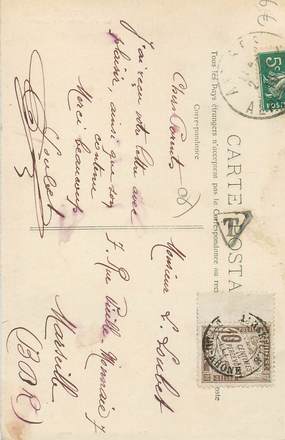 CARTE POSTALE
Tous les Pays étrangers n'acceptent pas la Correspondance au recto
Correspondance
Cher Parents
J'ai reçu votre lettre avec
plaisir, ainsi que son
contenu
Merci beaucoup
Loubet
Monsieur L. Loubet
7. Rue Vieille Monnaie 7
Marseille
(BDR)
T
5c
10
6€